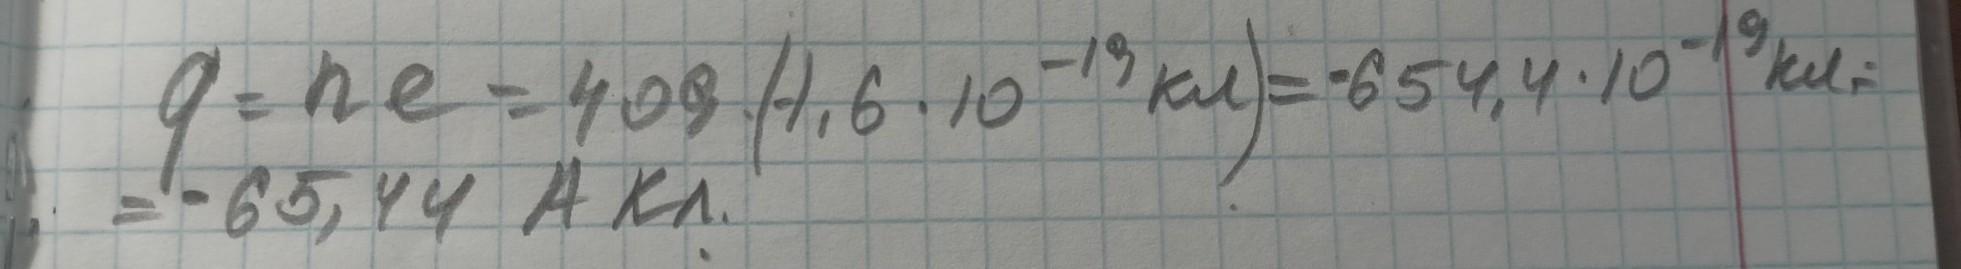 q = n e = 409 · (-1,6 · 10⁻¹⁹ Кл) = -654,4 · 10⁻¹⁹ Кл =
= -65,44 А Кл.